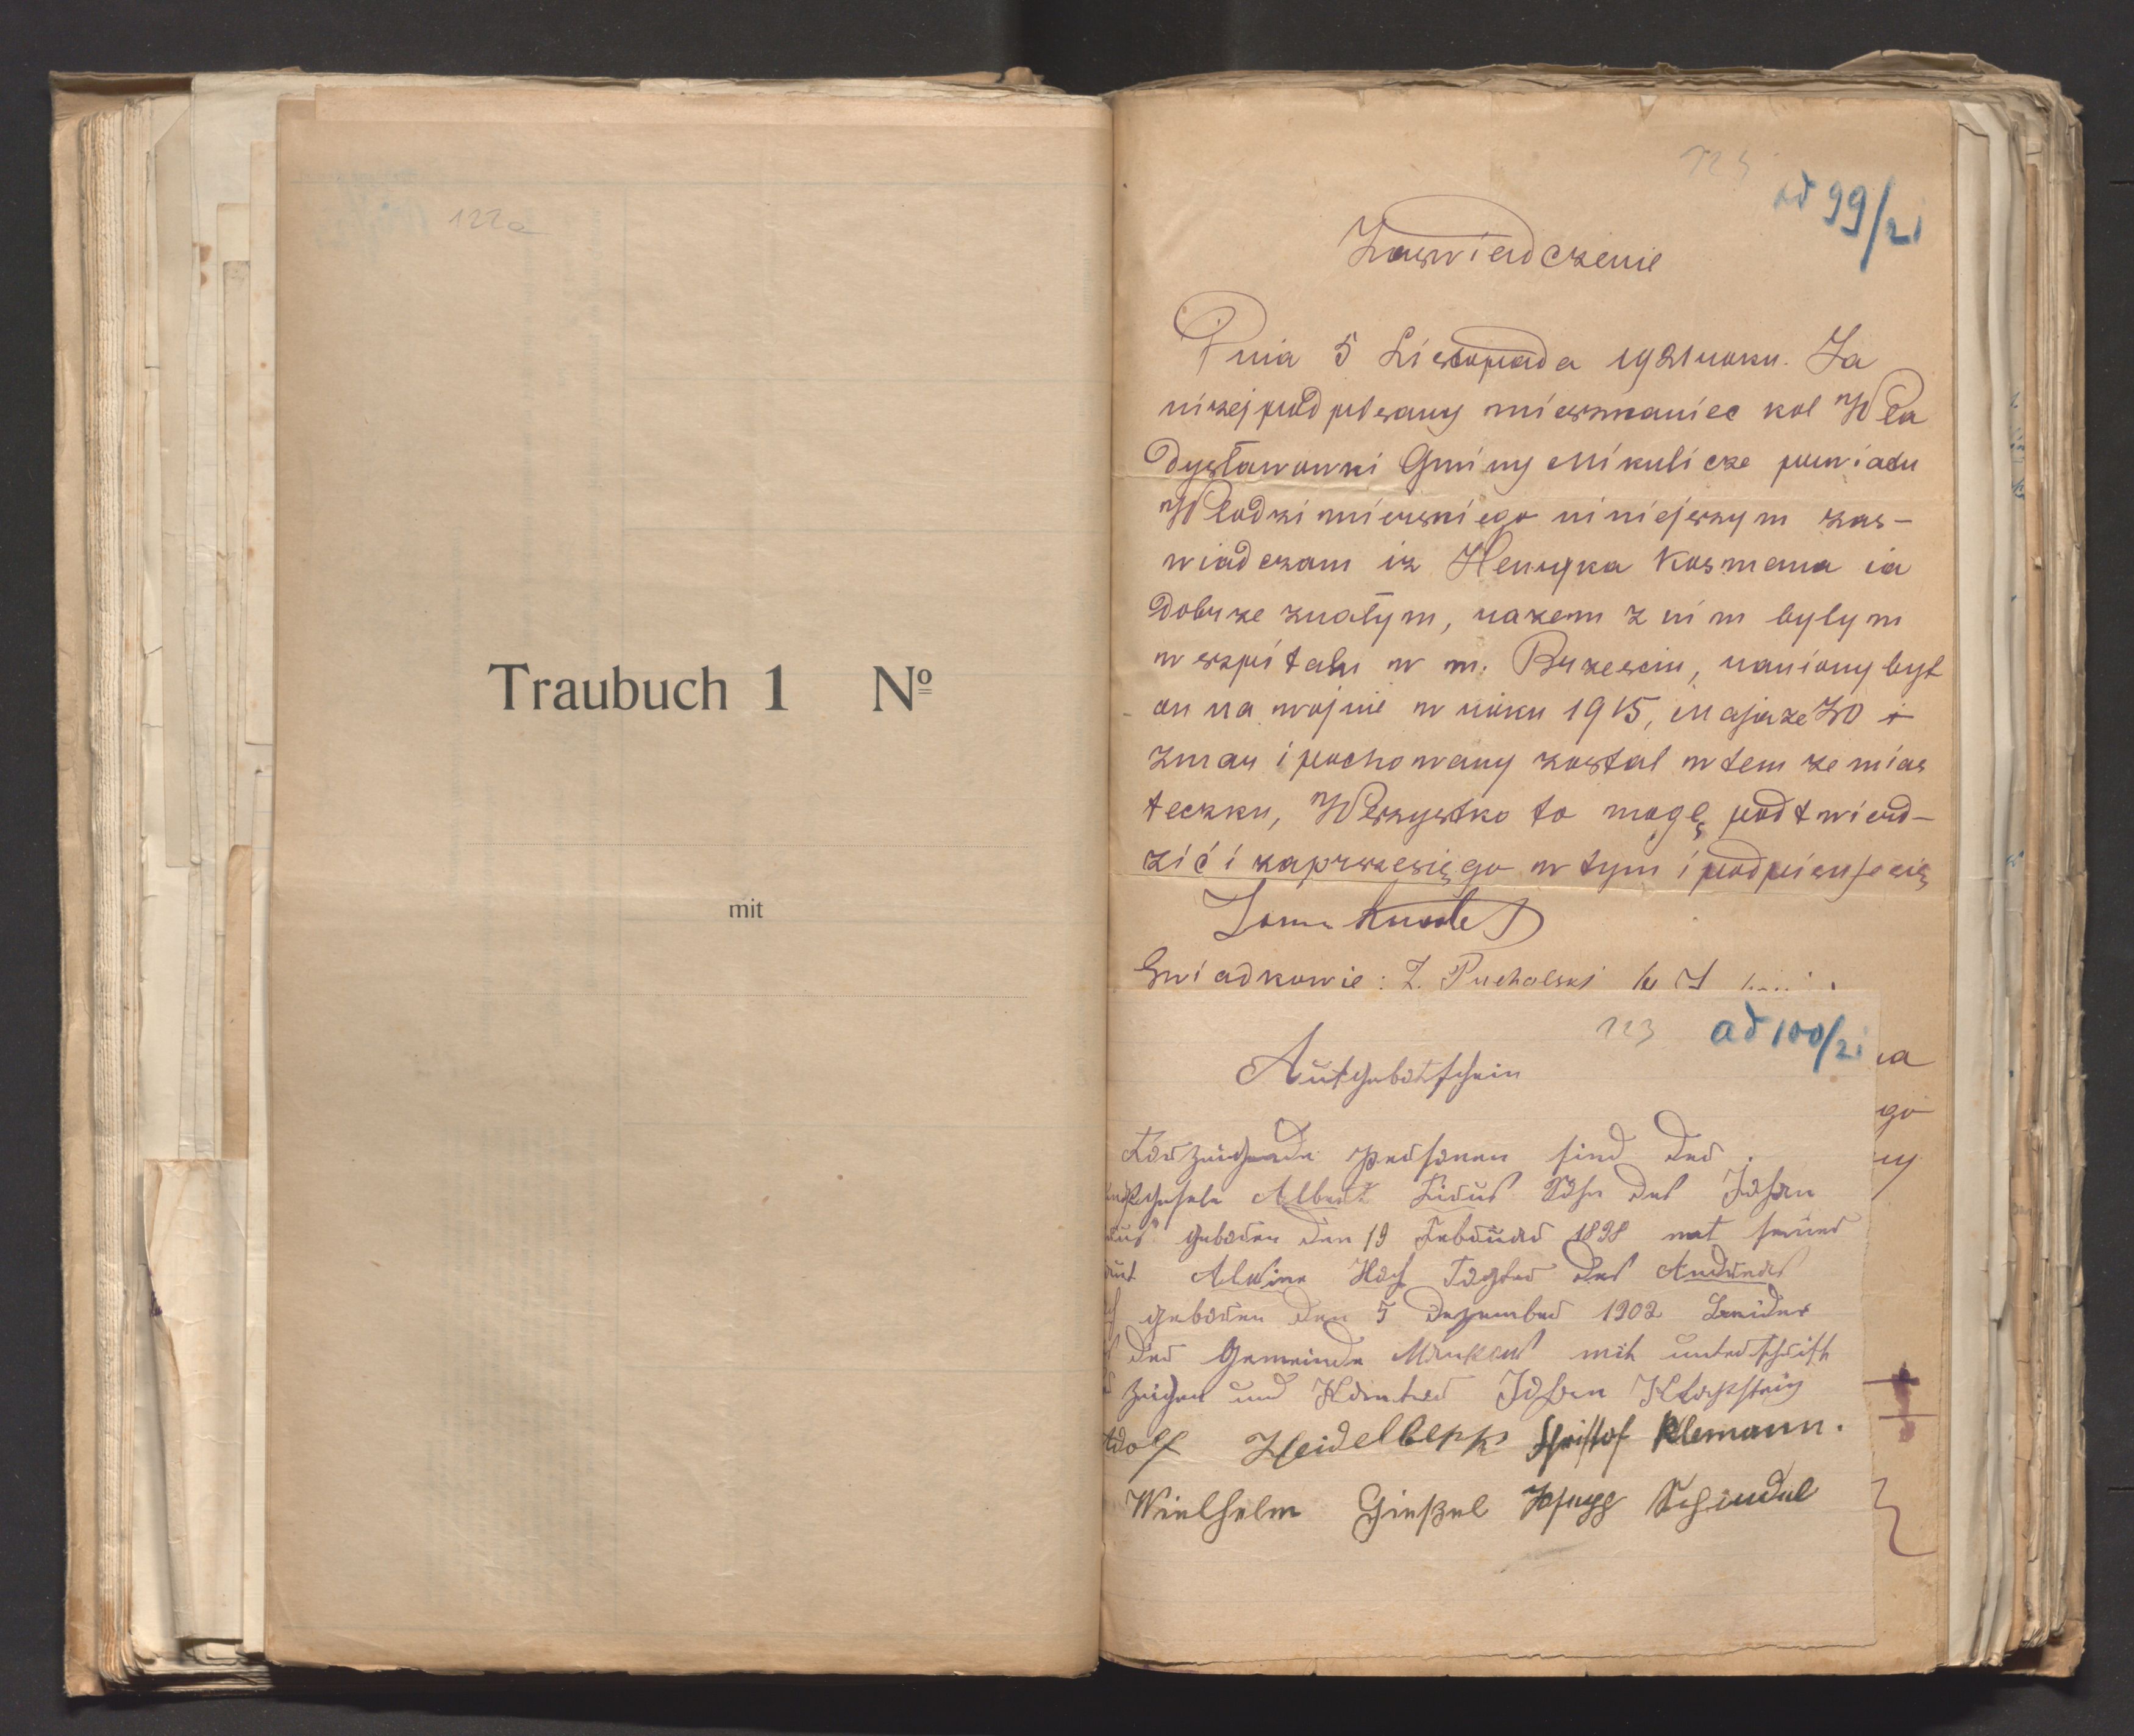 122a
Traubuch 1 Nº
mit
123
ad 99/21
Zaswiadczenie
Dnia 5 Listopada 1921 roku. Ja
nizej podpisany mieszkaniec kol Wla
dysławowki Gminy Mikulicze powiadu
Wlodzimierskiego niniejszym zas-
wiadczam iz Henryka Kosmana ia
dobrze znałym, razem z nim bylym
w szpitalu w m. Brzesciu, raniony byl
on na wojnie w roku 1915, Maja ze 30 i
zmar i pochowany zostal w tem ze mias
teczku, Wszystko to mogę podtwierd-
zić i zaprzesięgo w tym i podpisuje się
Swiadkowie: Z. Puchalski
123
ad 100/21
Aufgebotschein
Forzeichende Personen sind der
Albert Firus Sohn des Johan
geboren den 19 Februar 1898 mit seiner
Alwine Hach Tochter des Andreas
geboren den 5 Dezember 1902 beider
der Gemeinde mit unterschrift
zeichen und Kantor Johan Klapstein
Adolf Heidelbepk Christof Klemann.
Wielhelm Gießel Schindel
ra
go
ny